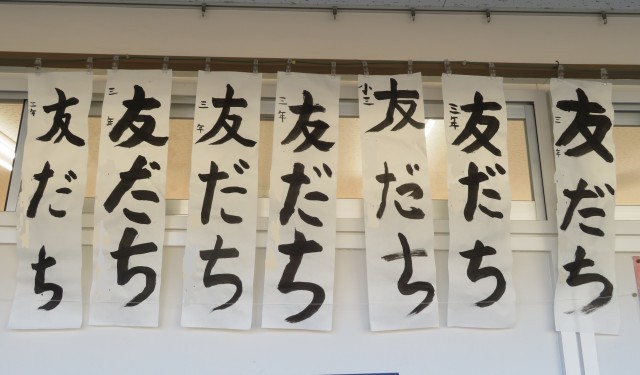 友だち
三年
友だち
三年
友だち
小三
友だち
三年
友だち
三年
友だち
三年
友だち
三年